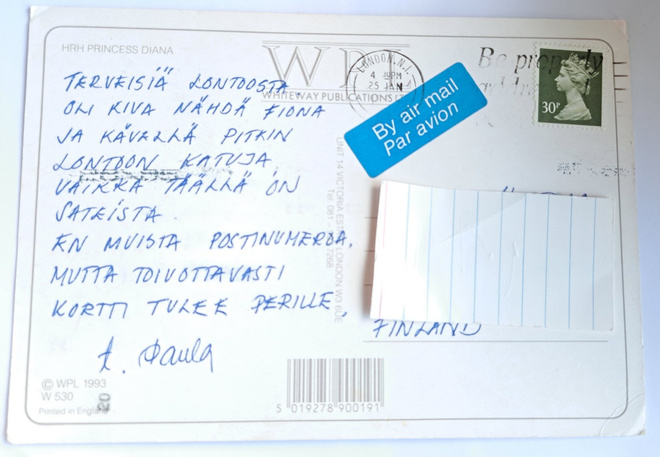 HRH PRINCESS DIANA
TERVEISIÄ LONTOOSTA.
OLI KIVA NÄHDÄ FIONA
JA KÄVELLÄ PITKIN
LONTOON KATUJA,
VAIKKA TÄÄLLÄ ON
SATEISTA.
EN MUISTA POSTINUMEROA,
MUTTA TOIVOTTAVASTI
KORTTI TULEE PERILLE,
t. Paula
© WPL 1993
W 530
Printed in England
20
WPL
WHITEWAY PUBLICATIONS
UNIT 14 VICTORIA LONDON
Tel: 081
LONDON N.1.
4 PM
25 JAN
Be properly
By air mail
Par avion
30P
FINLAND
5 019278 900191